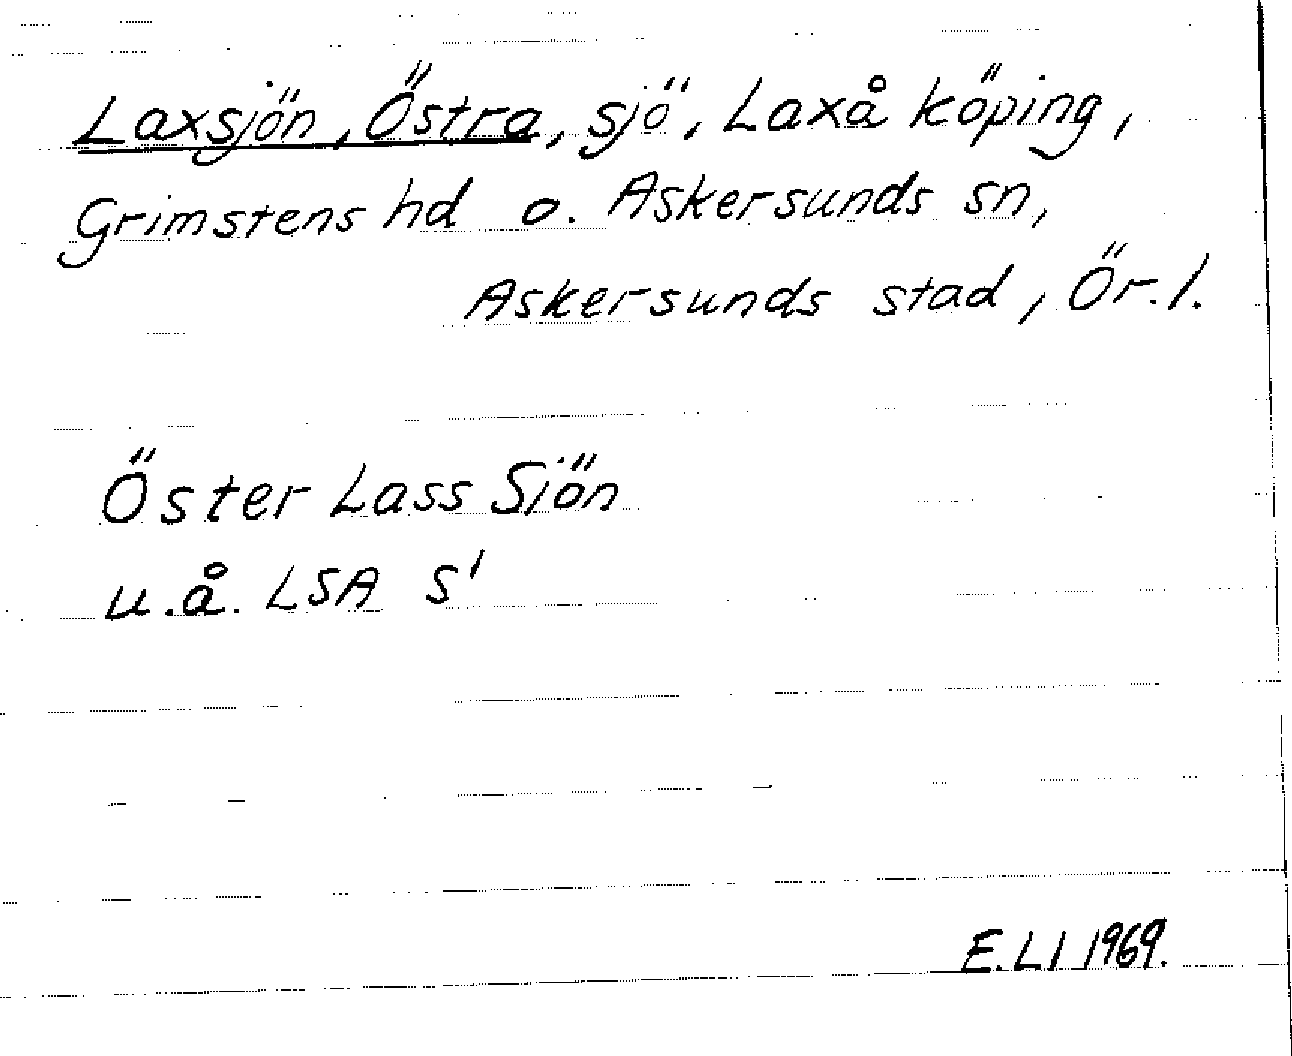 Laxsjön, Östra, sjö, Laxå köping,
Grimstens hd o. Askersunds sn,
Askersunds stad, Ör. l.
Öster Lass Siön
u.å. LSA S'
E.L I 1969.